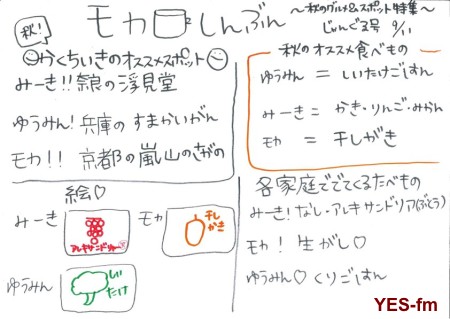 秋!
モカ しんぶん
~秋のグルメ&スポット特集~
じゅんご3号 9/11
かくちいきのオススメスポット
みーき!!奈良の浮見堂
ゆうみん!兵庫のすまかいがん
モカ!! 京都の嵐山のさがの
秋のオススメ食べもの
ゆうみん = しいたけごはん
みーき = かき・りんご・みかん
モカ = 干しがき
絵♡
みーき
アレキサンドリャー
モカ
干し
かき
ゆうみん
しい
たけ
各家庭ででてくるたべもの
みーき!なし・アレキサンドリア(ぶどう)
モカ! 生がし♡
ゆうみん♡ くりごはん
YES-fm